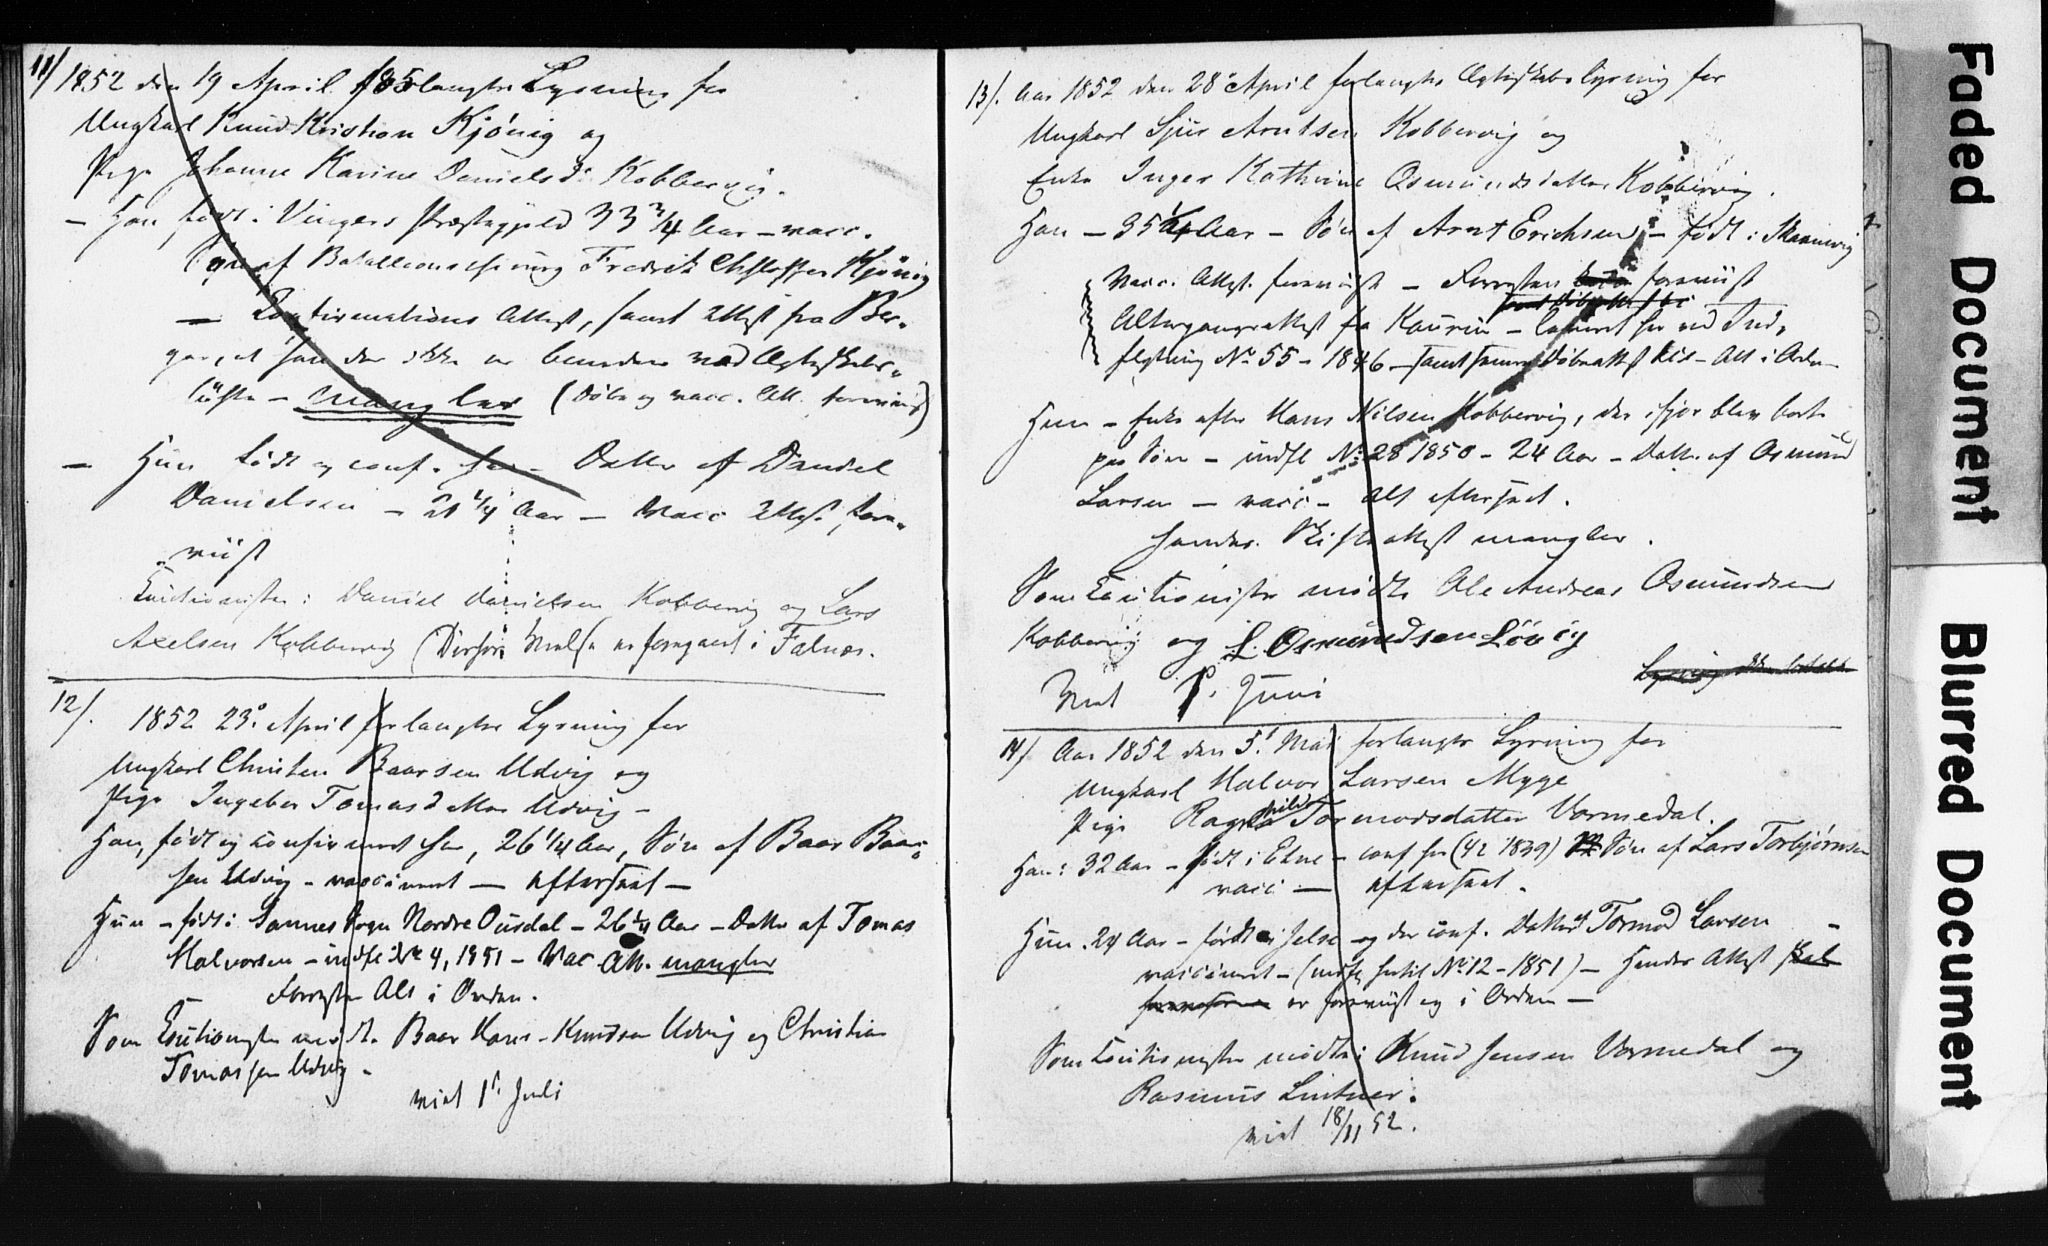 11/ 1852 den 19 April forlangtes Lysning for
Ungkarl Knud Kristian Kjönig og
Pige Johanne Karine Danielsd. Kobbervig.
— Han født i Vinger Præstegjeld 33 3/4 Aar – vacc.
Søn af Fredrik Chstoffer Kjönig
— Confirmations Attest, samt Attest fra Ber-
gen, at han der ikke er bunden ved Ægteskabs-
løfte – mangler (Døbe og vacc. Att. foreviist)
— Hun født og conf. her – Datter af Daniel
Danielsen – 21 1/4 Aar – Vacc Attest fore-
viist
Cautionister: Daniel Danielsen Kobbervig og Lars
Axelsen Kobbervig (Derfor i Falnæs.
12/.
1852 23. April forlangtes Lysning for
Ungkarl Christen Baarsen Udvig og
Pige Ingebor Tomasdatter Udvig –
Han, født og confirmeret her, 26 1/4 Aar, Søn af Baar Baar-
sen Udvig – vaccineret — efterseet –
Hun – født i Sannes Sogn Nordre Ousdal – 26 1/4 Aar – Datter af Tomas
Halvorsen – indfl: No 4, 1851 – Vac Att. mangler
Forresten Alt i Orden.
Som Cautionister mødte Baar Hans – Knudsen Udvig og Christian
Tomassen Udvig –
viet 1. Juli
13/. Aar 1852 den 28 April forlangtes Ægteskabslysning for
Ungkarl Sjur Arntsen Kobbervig og
Enke Inger Kathrine Osmundsdatter Kobbervig.
Han – 35 1/4 Aar – Søn af Arnt Erichsen – født i Skaanevig
Vacc. Attest foreviist – Forresten foreviist
Altergangsattest fra – her ved Ind-
flytning No 55 – 1846 – samt Døbeattest – Alt i Orden
Hun – Enke efter Hans Nilsen Kobbervig, der ifjor blev borte
paa Søen – indfl No 28 1850 – 24 Aar – Datter af Osmund
Larsen – vacc – Alt efterseet.
hendes Skifteattest mangler.
Som Cautionister mødte Ole Andreas Osmundsen
Kobbervig og L. Osmundsen Lövig
Viet 1. Juni
14/ Aar 1852 den 5. Mai forlangtes Lysning for
Ungkarl Halvor Larsen Myge
Pige Ragnhild Tormodsdatter Vormedal.
Han: 32 Aar – født i Etne – conf her (42 1839) Søn af Lars Torbjørnsen
vacc — efterseet.
Hun. 24 Aar – født i Jelse – og der conf. Datter af Tormod Larsen –
vaccineret – (indfl hertil No 12 – 1851) – Hendes Attest skal
er foreviist og i Orden —
Som Cautionister mødte: Knud Jensen Vormedal og
Rasmus Lintner.
viet 18/11 52.
Faded Document
Blurred Document